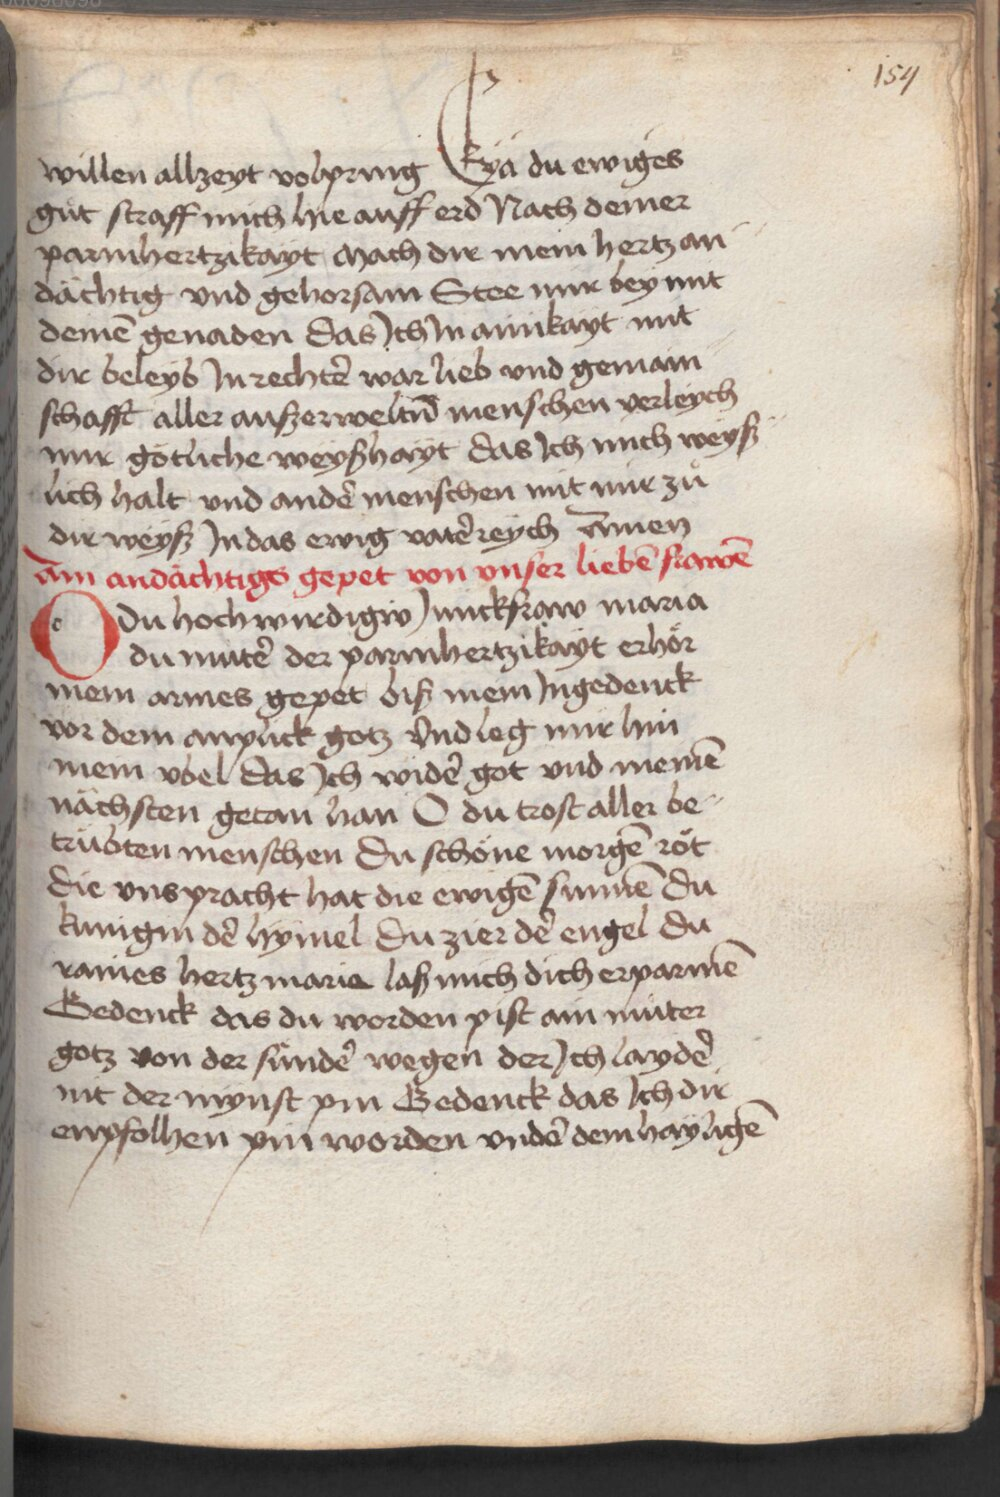 154
willen allzeyt volpring Eya du ewiges
gůt straff mich hie auff erd Nach deiner
parmhertzikayt Mach dir mein hertz an
dächtig vnd gehorsam Stee mir bey mit
deinē genaden Das Ich In ainikayt mit
dir beleyb In rechtē war lieb vnd gemain
schafft aller außerweltn̄ menschen verleych
mir götliche weyßhayt Das Ich mich weyß
lich halt vnd anderē menschen mit mir zů
dir weyß In das ewig vaterreych Amen
Ain andächtigs gepet von vnser liebē frawē
O du hochwirdigiv Iunckfraw maria
du muter der parmhertzikäyt erhör
mein armes gepet biß mein Ingedenck
vor dem anplick gotz Vnd leg mir hin
mein vbel Das Ich wider got vnd meinē
nächsten getan han O du trost aller be
trübten menschen Du schöne morgē röt
Die vns pracht hat die ewigē sunnē Du
kunigin der hymel Du zier der engel Du
raines hertz maria laß mich dich erparmē
Gedenck das du worden pist ain muter
gotz von der sünder wegen der Ich layder
nit der mynst pin Gedenck das Ich dir
enpfolhen pin worden vnder dem hayligē